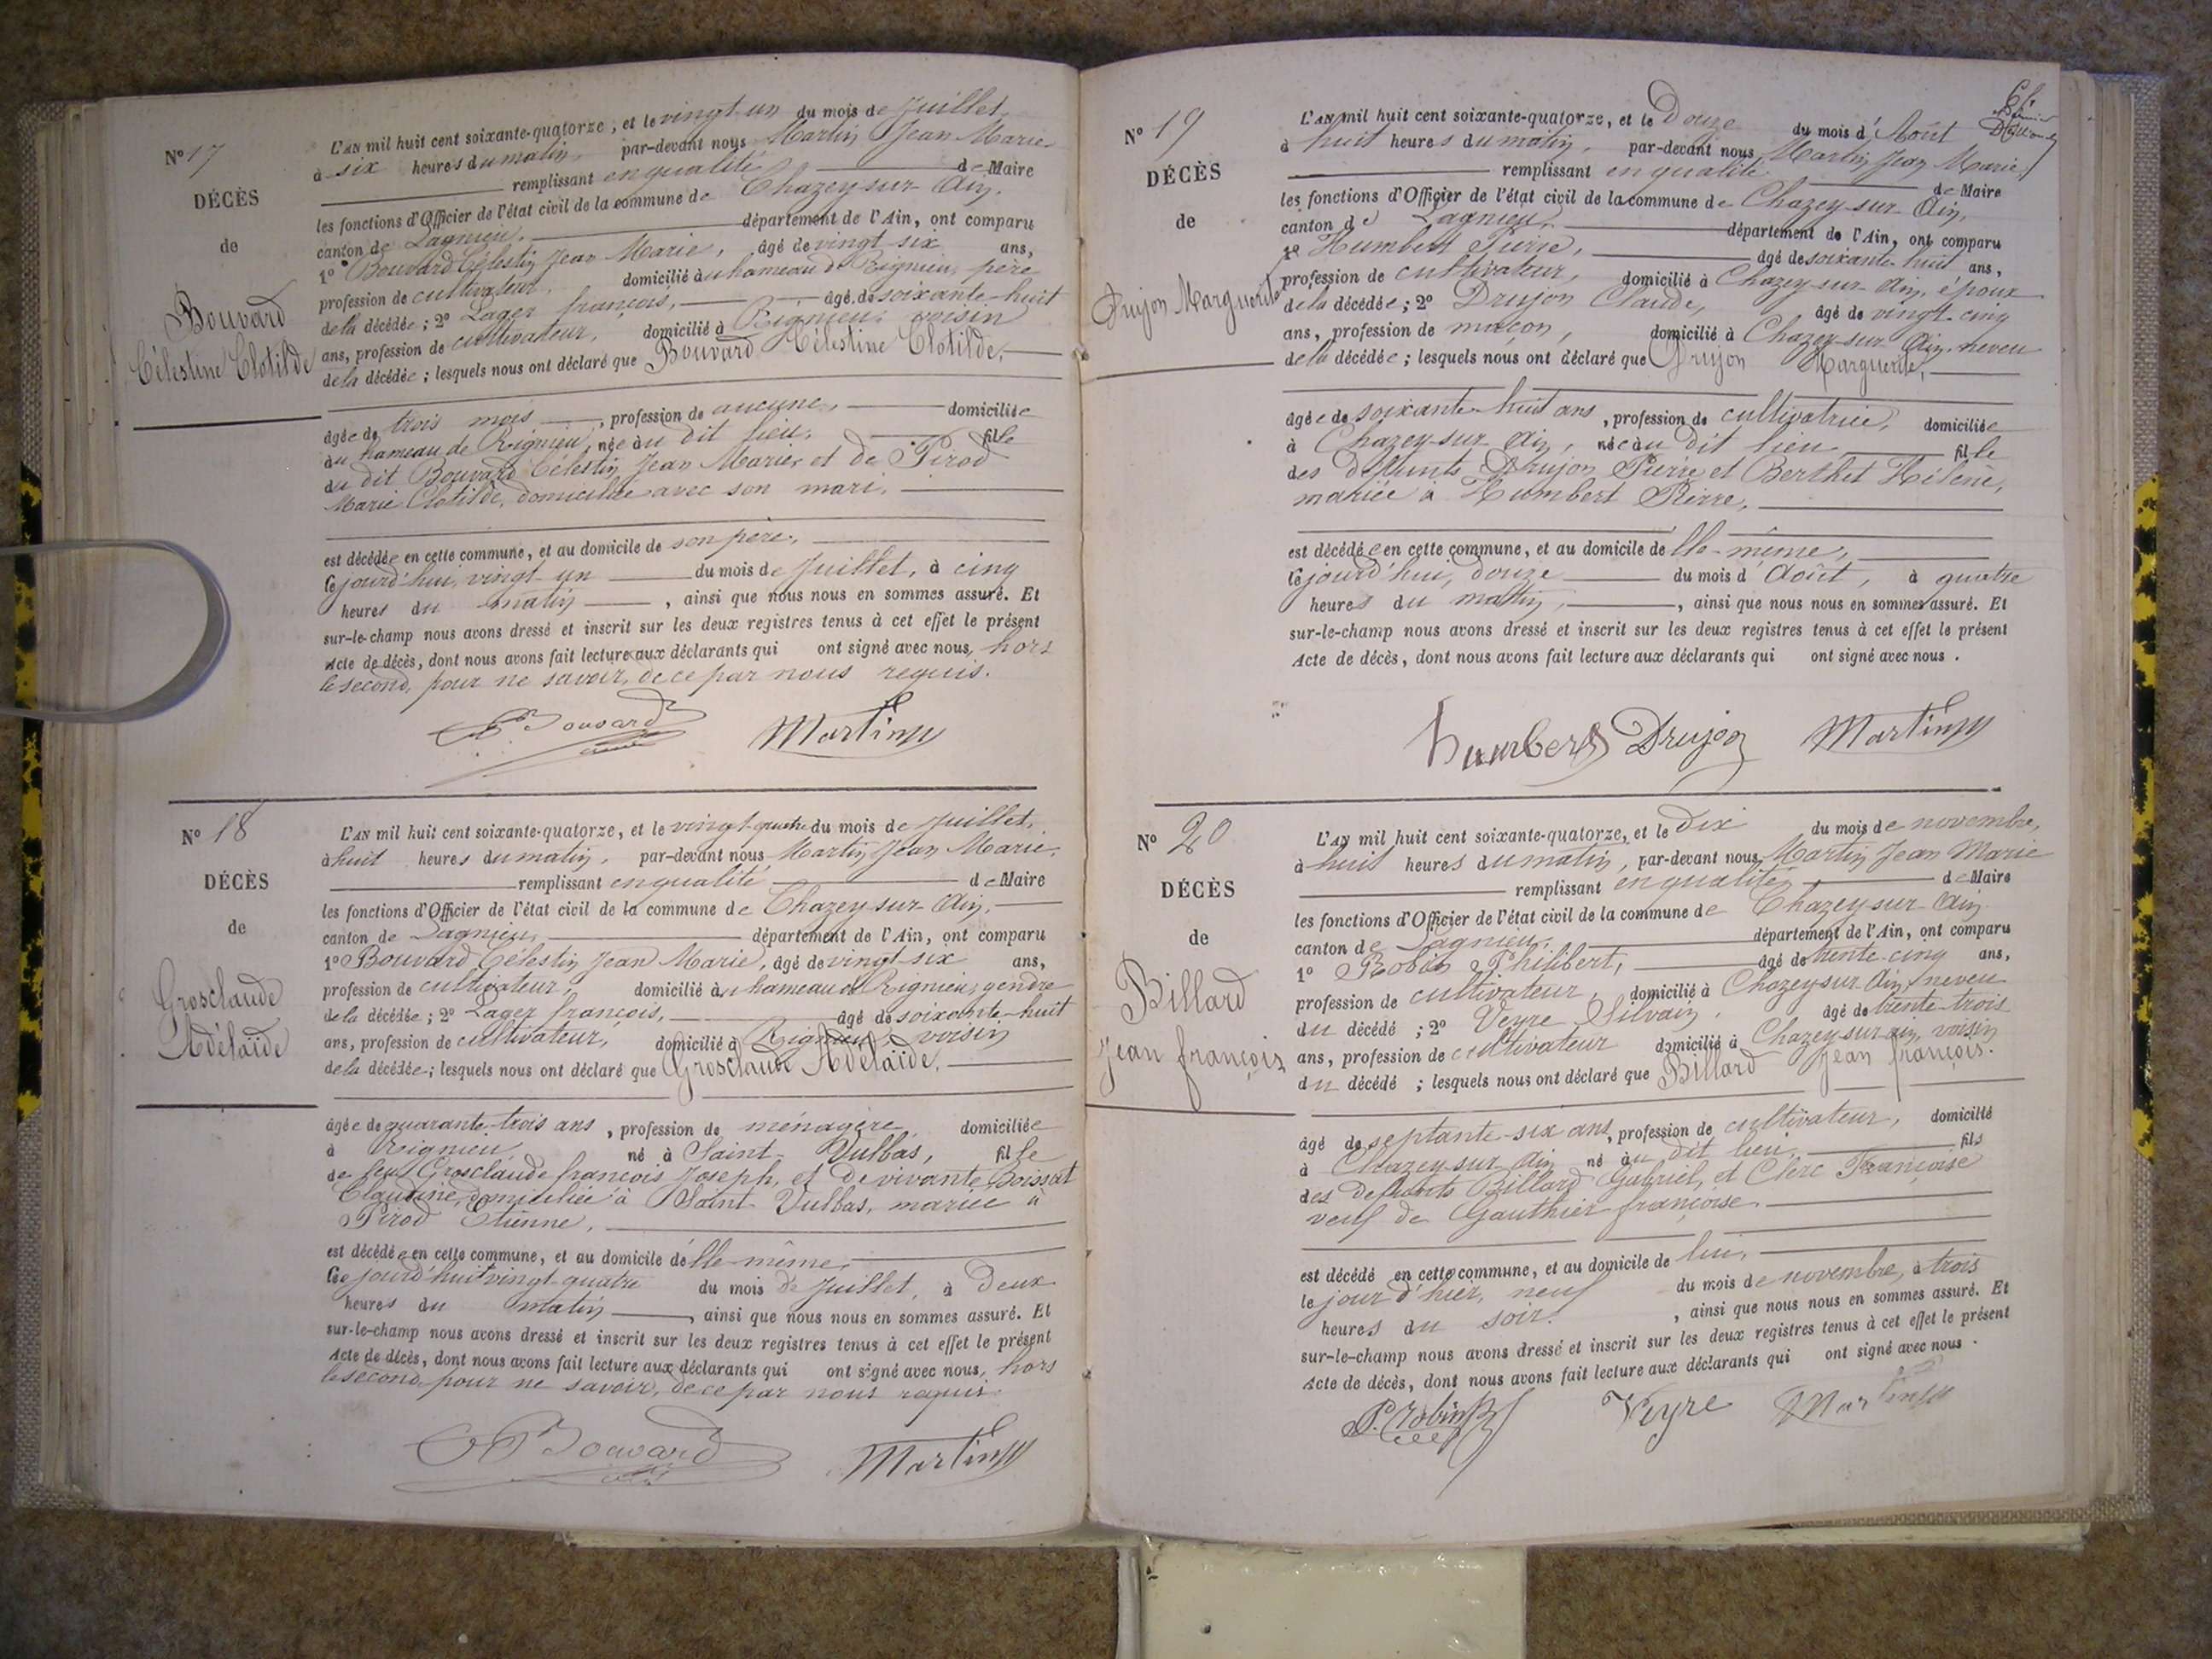 N° 17
DÉCÈS
de
Bouvard
Célestine Clotilde
L'AN mil huit cent soixante-quatorze, et le vingt-un du mois de Juillet,
à six heures du matin, par-devant nous Martin Jean Marie
remplissant en qualité de Maire
les fonctions d'Officier de l'état civil de la commune de Chazey-sur-Ain,
canton de Lagnieu, département de l'Ain, ont comparu
1° Bouvard Célestin Jean Marie, âgé de vingt-six ans,
profession de cultivateur, domicilié à u hameau de Rignieu, père
de la décédée ; 2° Lager françois, âgé de soixante-huit
ans, profession de cultivateur, domicilié à Rignieu, voisin
de la décédée ; lesquels nous ont déclaré que Bouvard Célestine Clotilde,
âgée de trois mois, profession de aucune, domiciliée
au hameau de Rignieu, née au dit lieu, fille
du dit Bouvard Célestin Jean Marie, et de Pirod
Marie Clotilde, domiciliée avec son mari,
est décédée en cette commune, et au domicile de son père,
Cejourd'hui, vingt-un du mois de Juillet, à cinq
heures du matin, ainsi que nous nous en sommes assuré. Et
sur-le-champ nous avons dressé et inscrit sur les deux registres tenus à cet effet le présent
Acte de décès, dont nous avons fait lecture aux déclarants qui ont signé avec nous, hors
le second, pour ne savoir, de ce par nous requis.
Bouvard Martin
N° 18
DÉCÈS
de
Grosclaude
Adélaïde
L'AN mil huit cent soixante-quatorze, et le vingt-quatre du mois de Juillet,
à huit heures du matin, par-devant nous Martin Jean Marie,
remplissant en qualité de Maire
les fonctions d'Officier de l'état civil de la commune de Chazey-sur-Ain,
canton de Lagnieu, département de l'Ain, ont comparu
1° Bouvard Célestin Jean Marie, âgé de vingt-six ans,
profession de cultivateur, domicilié à u hameau de Rignieu, gendre
de la décédée ; 2° Lager françois, âgé de soixante-huit
ans, profession de cultivateur, domicilié à Rignieu, voisin
de la décédée ; lesquels nous ont déclaré que Grosclaude Adélaïde,
âgée de quarante-trois ans, profession de ménagère, domiciliée
à Rignieu, né à Saint-Vulbas, fille
de feu Grosclaude françois Joseph, et de vivante Boissat
Claudine, domiciliée à Saint-Vulbas, mariée à
Pirod Etienne,
est décédée en cette commune, et au domicile d'elle-même,
Cejourd'hui vingt-quatre du mois de Juillet, à Deux
heures du matin, ainsi que nous nous en sommes assuré. Et
sur-le-champ nous avons dressé et inscrit sur les deux registres tenus à cet effet le présent
Acte de décès, dont nous avons fait lecture aux déclarants qui ont signé avec nous, hors
le second, pour ne savoir, de ce par nous requis.
Bouvard Martin
N° 19
DÉCÈS
de
Drujon Marguerite
L'AN mil huit cent soixante-quatorze, et le Douze du mois d'Août
à huit heures du matin, par-devant nous Martin Jean Marie,
remplissant en qualité de Maire
les fonctions d'Officier de l'état civil de la commune de Chazey-sur-Ain,
canton de Lagnieu, département de l'Ain, ont comparu
1° Humbert Pierre, âgé de soixante-huit ans,
profession de cultivateur, domicilié à Chazey-sur-Ain, époux
de la décédée ; 2° Drujon Claude, âgé de vingt-cinq
ans, profession de maçon, domicilié à Chazey-sur-Ain, neveu
de la décédée ; lesquels nous ont déclaré que Drujon Marguerite,
âgée de soixante-huit ans, profession de cultivatrice, domiciliée
à Chazey-sur-Ain, née au dit lieu fille
des défunts Drujon Pierre et Berthet Hélène,
mariée à Humbert Pierre,
est décédée en cette commune, et au domicile d'elle-même,
Cejourd'hui, douze du mois d'Août, à quatre
heures du matin, ainsi que nous nous en sommes assuré. Et
sur-le-champ nous avons dressé et inscrit sur les deux registres tenus à cet effet le présent
Acte de décès, dont nous avons fait lecture aux déclarants qui ont signé avec nous.
humbert Drujon Martin
N° 20
DÉCÈS
de
Billard
Jean françois
L'AN mil huit cent soixante-quatorze, et le Dix du mois de novembre,
à huit heures du matin, par-devant nous Martin Jean Marie
remplissant en qualité de Maire
les fonctions d'Officier de l'état civil de la commune de Chazey-sur-Ain
canton de Lagnieu, département de l'Ain, ont comparu
1° Robin Philibert, âgé de trente-cinq ans,
profession de cultivateur, domicilié à Chazey-sur-Ain, neveu
du décédé ; 2° Veyre Silvain, âgé de trente-trois
ans, profession de cultivateur domicilié à Chazey-sur-ain, voisin
du décédé ; lesquels nous ont déclaré que Billard Jean françois.
âgé de septante-six ans, profession de cultivateur, domicilié
à Chazey-sur-Ain né au dit lieu, fils
des défunts Billard Gabriel, et Clerc Françoise
veuf de Gauthier françoise.
est décédé en cette commune, et au domicile de lui,
le jour d'hier, neuf du mois de novembre, à trois
heures du soir, ainsi que nous nous en sommes assuré. Et
sur-le-champ nous avons dressé et inscrit sur les deux registres tenus à cet effet le présent
Acte de décès, dont nous avons fait lecture aux déclarants qui ont signé avec nous.
P. Robin Veyre Martin